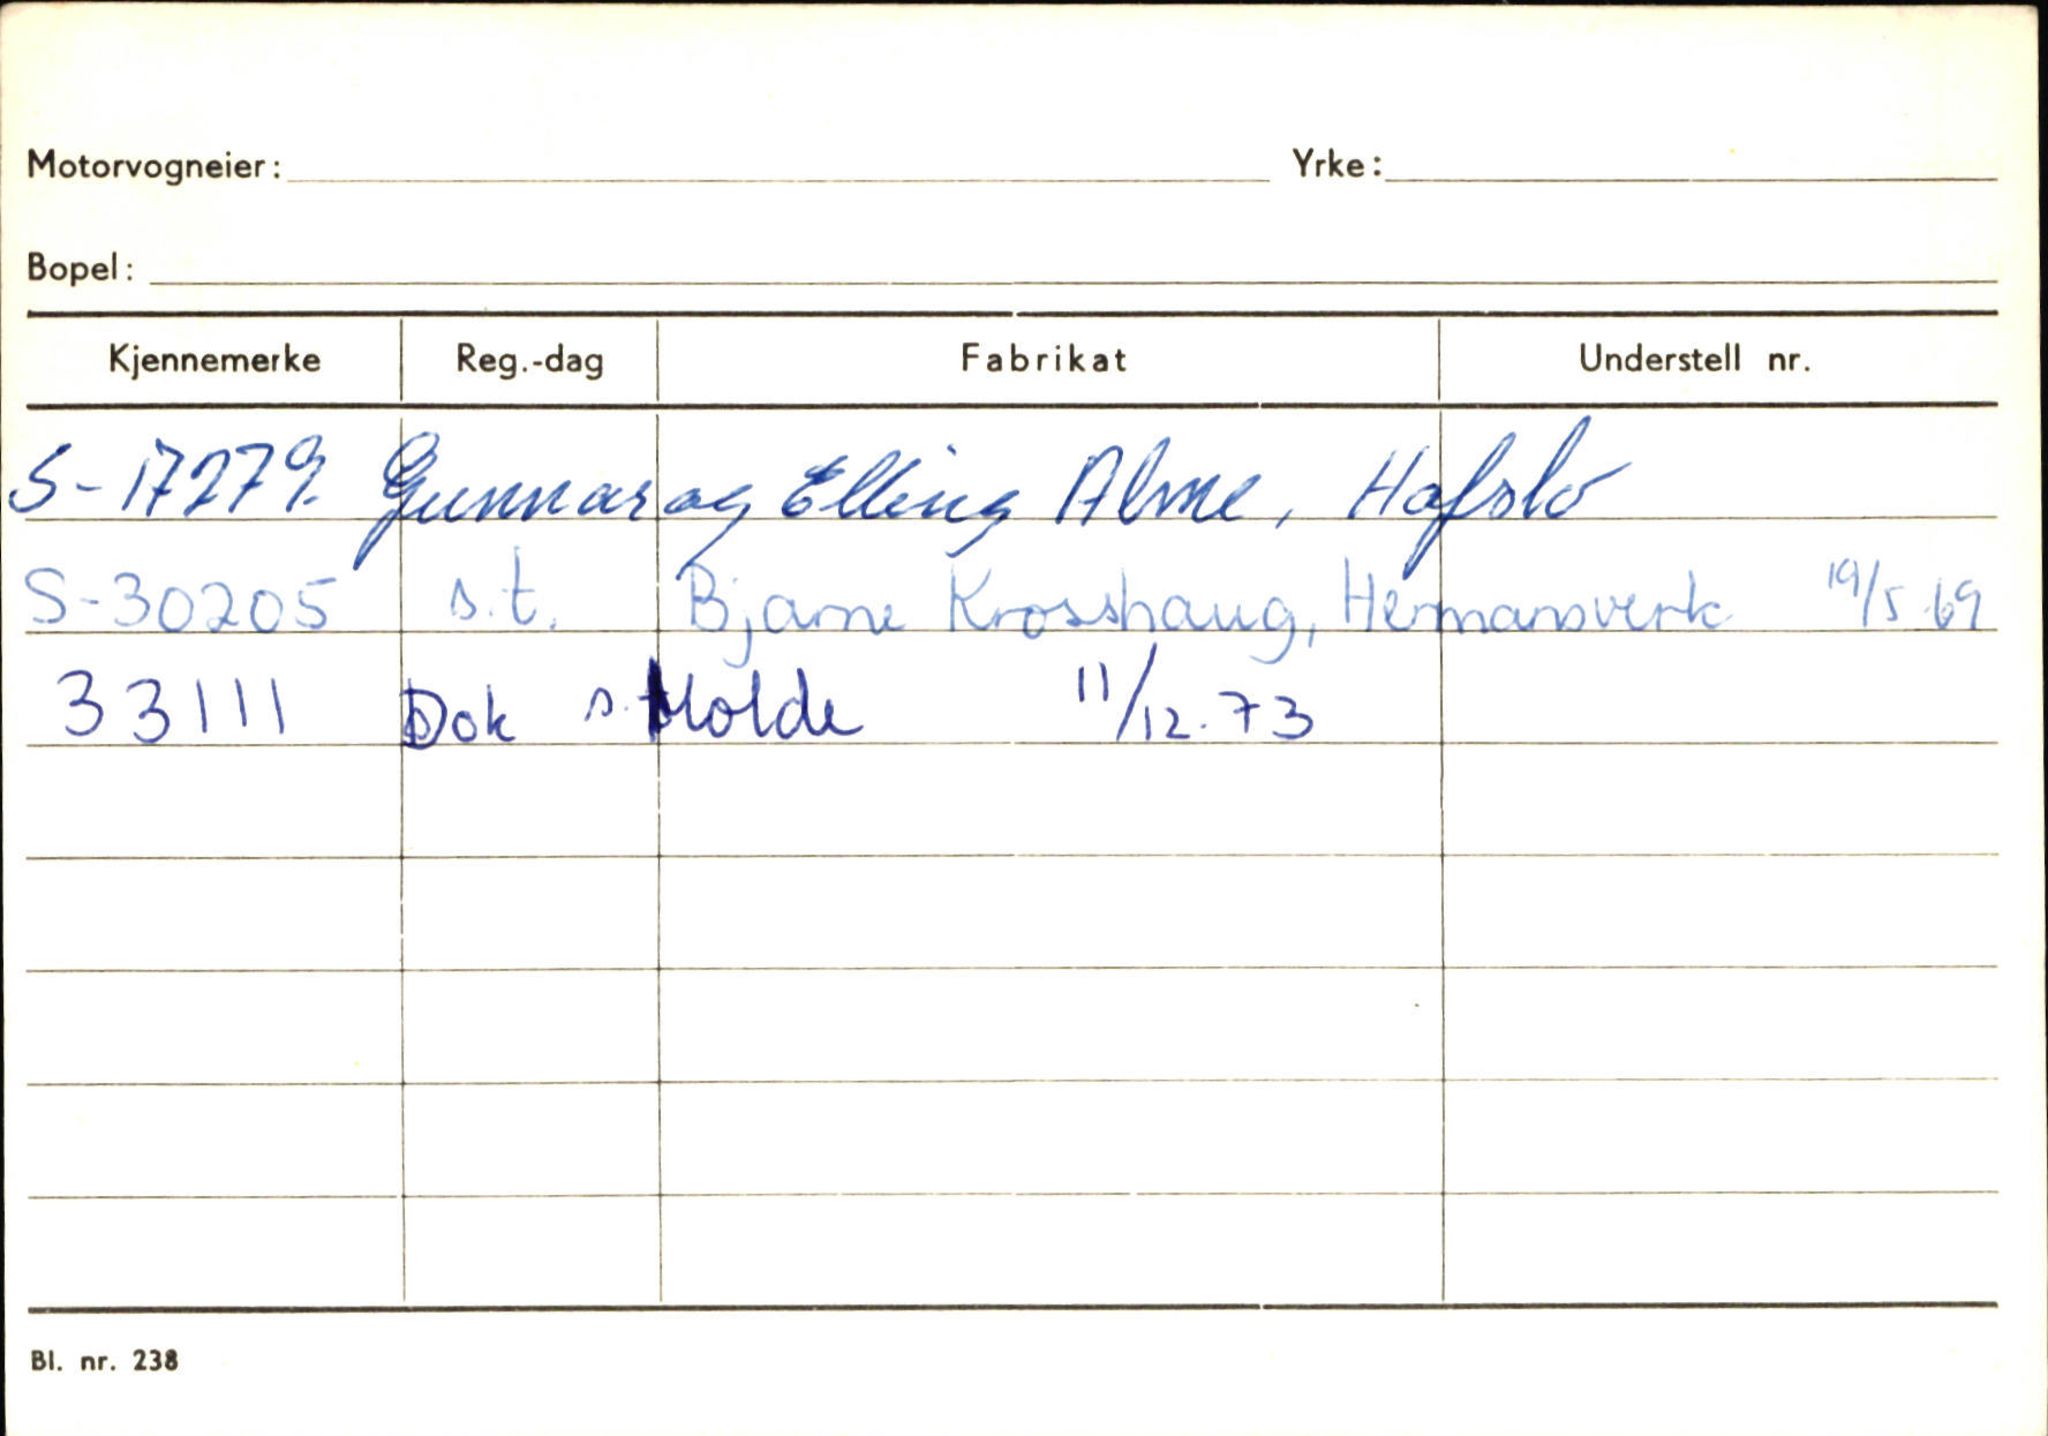 Motorvogneier: Yrke:
Bopel:
Kjennemerke Reg.-dag Fabrikat Understell nr.
S-17279. Gunnar og Elling Alme, Hafslo
S-30205 s.t. Bjarne Krosshaug, Hermansverk 19/5-69
33111 Dok s.t Molde 11/12.73
Bl. nr. 238